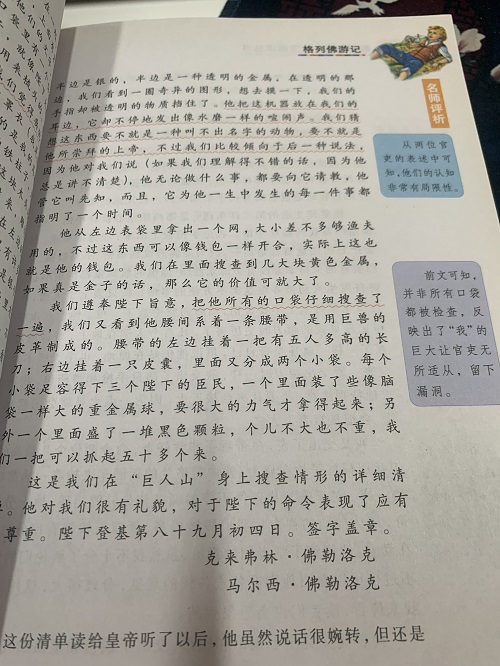 格列佛游记
名师评析
半边是银的，半边是一种透明的金属，在透明的那
边，我们看到一圈奇异的图形，想去摸一下，我们的
手指却被透明的物质挡住了。他把这机器放在我们的
耳边，它却不停地发出像水磨一样的喧闹声。我们猜
想这东西要不就是一种叫不出名字的动物，要不就是
他所崇拜的上帝，不过我们比较倾向于后一种说法，
因为他对我们说（如果我们理解得不错的话，因为他
总是讲不清楚），他无论做什么事，都要向它请教，他
管它叫先知，而且，它为他一生中发生的每一件事都
指明了一个时间。
他从左边表袋里拿出一个网，大小差不多够渔夫
用的，不过这东西可以像钱包一样开合，实际上这也
就是他的钱包。我们在里面搜查到几大块黄色金属，
如果真是金子的话，那么它的价值可就大了。
我们遵奉陛下旨意，把他所有的口袋仔细搜查了
一遍，我们又看到他腰间系着一条腰带，是用巨兽的
皮革制成的。腰带的左边挂着一把有五人多高的长
刀；右边挂着一只皮囊，里面又分成两个小袋。每个
小袋足容得下三个陛下的臣民，一个里面装了些像脑
袋一样大的重金属球，要很大的力气才拿得起来；另
外一个里面盛了一堆黑色颗粒，个儿不大也不重，我
们一把可以抓起五十多个来。
这是我们在“巨人山”身上搜查情形的详细清
单。他对我们很有礼貌，对于陛下的命令表现了应有
尊重。陛下登基第八十九月初四日。签字盖章。
克来弗林·佛勒洛克
马尔西·佛勒洛克
这份清单读给皇帝听了以后，他虽然说话很婉转，但还是
从两位官
吏的表述中可
知，他们的认知
非常有局限性。
前文可知，
并非所有口袋
都被检查，反
映出了“我”的
巨大让官吏无
所适从，留下
漏洞。